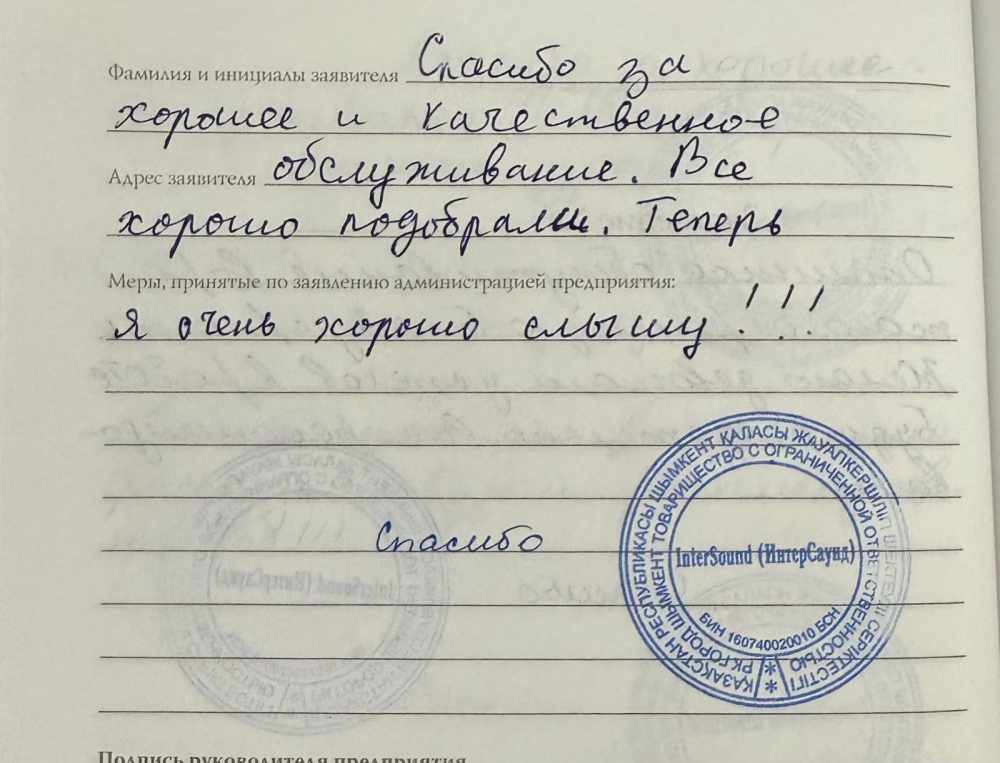 Фамилия и инициалы заявителя Спасибо за
хорошее и качественное
Адрес заявителя обслуживание. Все
хорошо подобрали. Теперь
Меры, принятые по заявлению администрацией предприятия:
Я очень хорошо слышу!!!
Спасибо
ҚАЗАҚСТАН РЕСПУБЛИКАСЫ ШЫМКЕНТ ҚАЛАСЫ ЖАУАПКЕРШІЛІГІ ШЕКТЕУЛІ СЕРІКТЕСТІГІ
РК ГОРОД ШЫМКЕНТ ТОВАРИЩЕСТВО С ОГРАНИЧЕННОЙ ОТВЕТСТВЕННОСТЬЮ
InterSound (ИнтерСаунд)
БИН 160740020010 БСН
Подпись руководителя предприятия